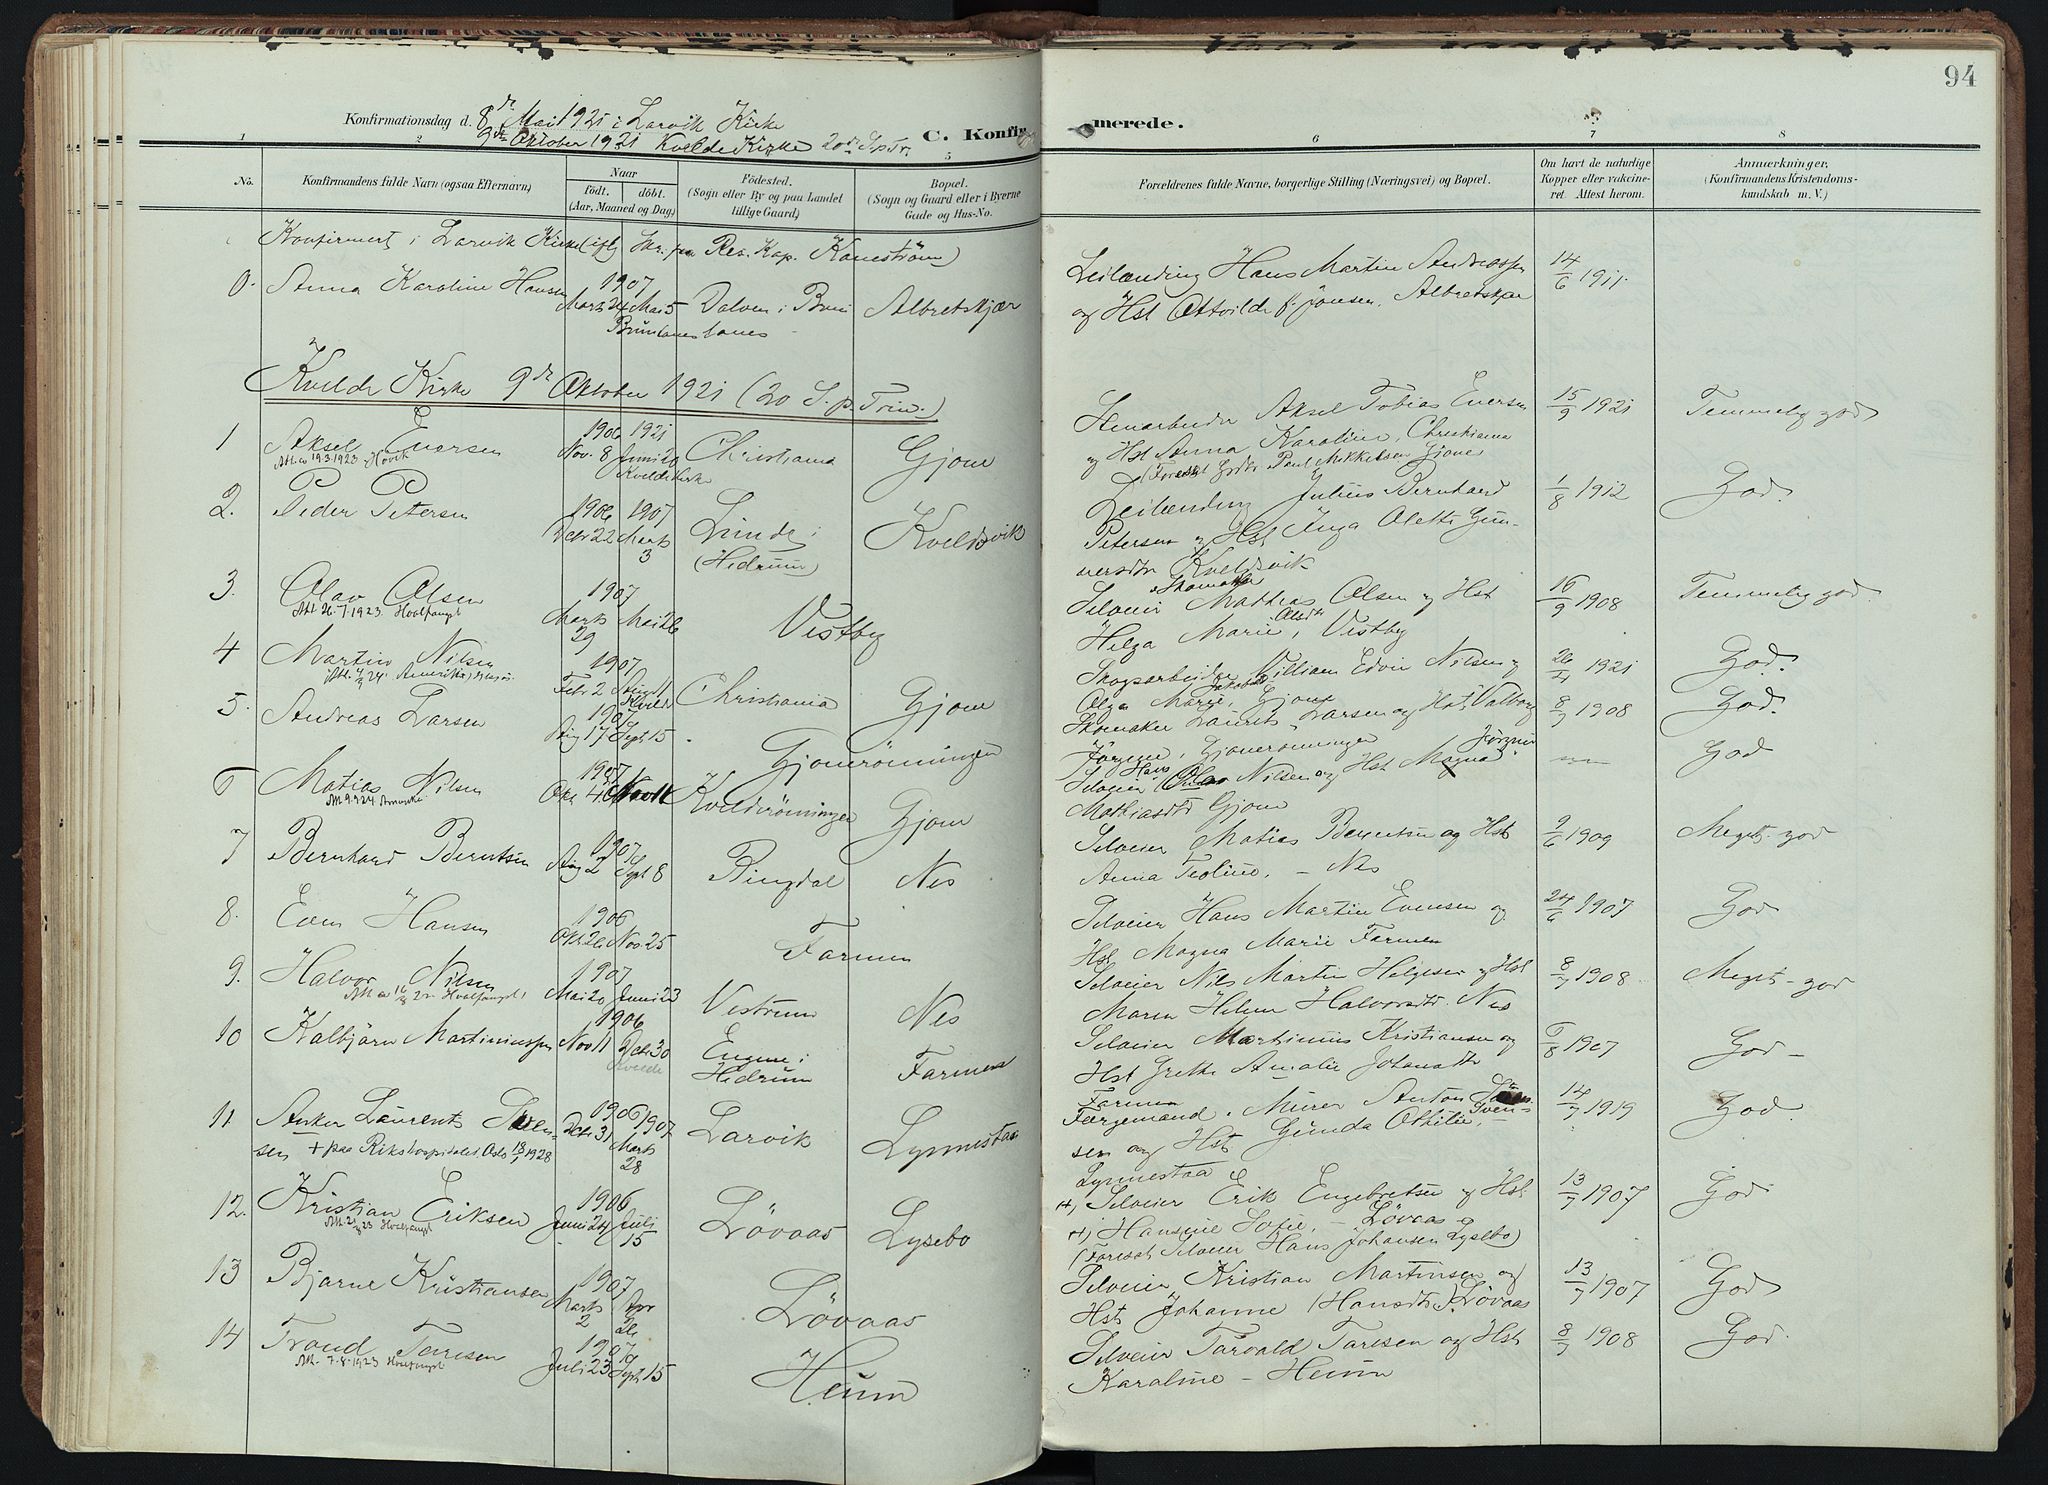 94
Konfirmationsdag d. 8de Mai 1921 i Larvik Kirke
9de Oktober 1921 Kvelde Kirke 20de S. p. Tr.
C. Konfirmerede.
1 2 5 6 7 8
No.
Konfirmandens fulde Navn (ogsaa Efternavn)
Naar
födt. döbt.
(Aar, Maaned og Dag)
Födested.
(Sogn eller By og paa Landet
tillige Gaard)
Bopæl.
(Sogn og Gaard eller i Byerne
Gade og Hus-No.
Forældrenes fulde Navne, borgerlige Stilling (Næringsvei) og Bopæl.
Om havt de naturlige
Kopper eller vakcine-
ret. Attest herom.
Anmerkninger,
(Konfirmandens Kristendoms-
kundskab m. V.)
Konfirmert i Larvik Kirke (ifl. Skr. fra Res. Kap. Kanestrøm)
0. Anna Karoline Hansen 1907 Marts 24 Mai 5 Brunlanes Dolven i Brunlanes Albretskjær
Leilænding Hans Martin Andreassen
og Hst Ottvilde f. Jonsen. Albretskjær
14/6 1911
Kvelde Kirke 9de Oktober 1921 (20 S. p. Trin.)
1 Aksel Evensen 1906 Nov. 8 1921 Juni 20 Kvelde Kirke Christiania Gjone
Att. 19.3.1923 Hovik
Stenarbeider Aksel Tobias Evensen
og Hst Anna Karoline, Christiania
(Foresat Grdbr Paul Mikkelsen Gjone)
15/9 1921 Temmelig god
2. Peder Petersen 1906 Decbr 22 1907 Marts 3 Linde i (Hedrum) Kveldsvik
Leilænding Julius Bernhard
Petersen og Hst Inga Olette Gun-
nersdtr Kveldsvik
1/8 1912 God.
3. Olav Olsen 1907 Marts 29 Mai 26 Vestby
Att 26.7.1923 Hvalfangst
Selveier Skomaker Mathias Olsen og Hst
Helga Marie Olsdtr, Vestby
16/9 1908 Temmelig god.
4 Martin Nilsen 1907 Feb 2 Kvelde Christiania Gjone
Skogsarbeider William Edvin Nilsen og
Olga Marie Jakobsdtr, Gjone
1921 God.
5. Andreas Larsen 1907 Aug 17 Sept 15 Gjonerönningen
Skomaker Laurits Larsen og Hst Valborg
Jørgine, Gjonerönningen
8/7 1908 God.
6 Matias Nilsen 1907 Okt Kvelderönningen Gjone
Att 9.9.24 Amerika
Selveier Hans Olav Nilsen og Hst Magna Jørgine
Mathiasdtr Gjone
God
7 Bernhard Berntsen 1907 Aug 2 Sept 8 Ringdal Nes
Selveier Matias Berntsen og Hst
Anna Teoline. – Nes
9/6 1909 Meget god
8. Even Hansen 1906 Okt 26 Nov 25 Farmen
Selveier Hans Martin Evensen og
Hst Magna Marie Farmen
24/6 1907 God
9. Halvor Nilsen 1907 Mai 20 Juni 23 Vestrum Nes
Selveier Nils Martin Helgesen og Hst
Maren Helene Halvorsdtr. Nes
8/7 1908. Meget – god
10 Kalbjörn Martiniussen 1906 Nov 11 Decbr 30 Kvelde Engene i Hedrum Farmen
Selveier Martinius Kristiansen og
Hst Grethe Amalie Johansdtr
Farmen
6/8 1907 God –
11 Anker Laurents Sven-
sen + paa Rikshospitalet i Oslo 13/7 1928
1906 Decbr 31 1907 Marts 28 Larvik Lynnestaa
Færgemand, Murer Anton Sven-
sen og Hst Gunda Othilie, –
Lynnestaa
14/7 1919 God
12. Kristian Eriksen 1906 Juni 24 Juli 15 Lövaas Lysebo
+) Selveier Erik Engebretsen og Hst
+) Hansine Sofie, – Løvaas
(Foresat Selveier Hans Johansen Lysebo)
13/7 1907 God
13 Bjarne Kristiansen 1907 Marts 2 Apr Lövaas
Selveier Kristian Martinsen og
Hst Johanne (Hansdtr) Lövaas
13/7 1907 God
14 Trond Taresen 1907 Juli 23 Sept 15 Heum
Att. 7.8.1923 Hvalfangst
Selveier Torvald Taresen og Hst
Karoline – Heum
8/7 1908 God